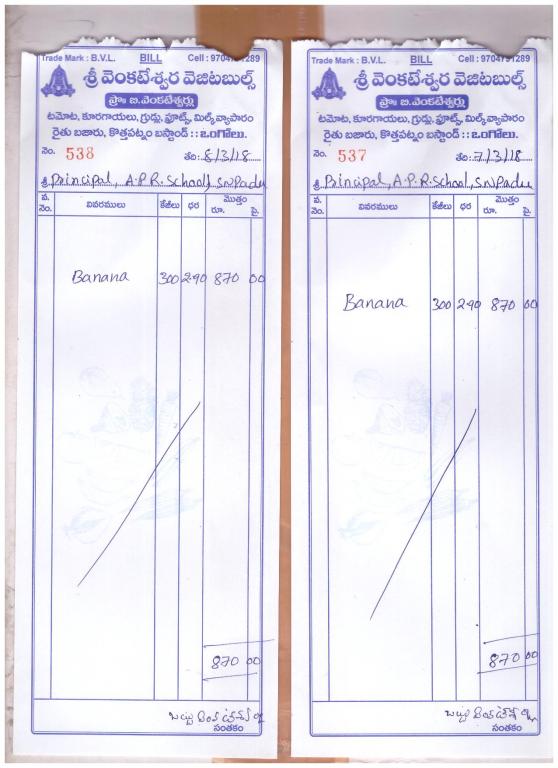 Trade Mark : B.V.L. BILL Cell : 9704791289
శ్రీ వెంకటేశ్వర వెజిటబుల్స్
ప్రొ॥ బి.వెంకటేశ్వర్లు
టమోట, కూరగాయలు, గ్రుడ్లు, ఫ్రూట్స్, మిల్క్ వ్యాపారం
రైతు బజారు, కొత్తపట్నం బస్టాండ్ :: ఒంగోలు.
నెం. 538 తేది: 8/3/18
శ్రీ Principal, A.P.R. School, SN Padu
వ.నెం. వివరములు కేజీలు ధర మొత్తం రూ. పై.
Banana 300 2.90 870 00
870 00
సంతకం
Trade Mark : B.V.L. BILL Cell : 9704791289
శ్రీ వెంకటేశ్వర వెజిటబుల్స్
ప్రొ॥ బి.వెంకటేశ్వర్లు
టమోట, కూరగాయలు, గ్రుడ్లు, ఫ్రూట్స్, మిల్క్ వ్యాపారం
రైతు బజారు, కొత్తపట్నం బస్టాండ్ :: ఒంగోలు.
నెం. 537 తేది: 7/3/18
శ్రీ Principal, A.P.R. School, SN Padu
వ.నెం. వివరములు కేజీలు ధర మొత్తం రూ. పై.
Banana 300 2.90 870 00
870 00
సంతకం